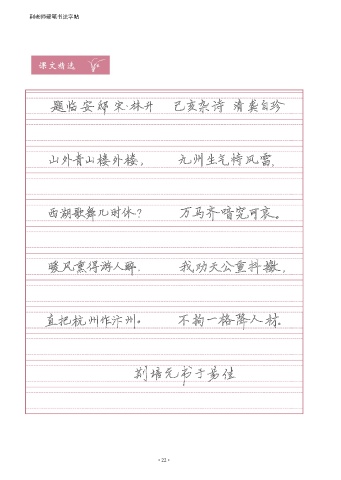 荆老师硬笔书法字帖
课文精选
题临安邸 宋·林升 己亥杂诗 清龚自珍
山外青山楼外楼， 九州生气恃风雷，
西湖歌舞几时休？ 万马齐喑究可哀。
暖风熏得游人醉， 我劝天公重抖擞，
直把杭州作汴州。 不拘一格降人材。
荆培元书于易佳
·22·